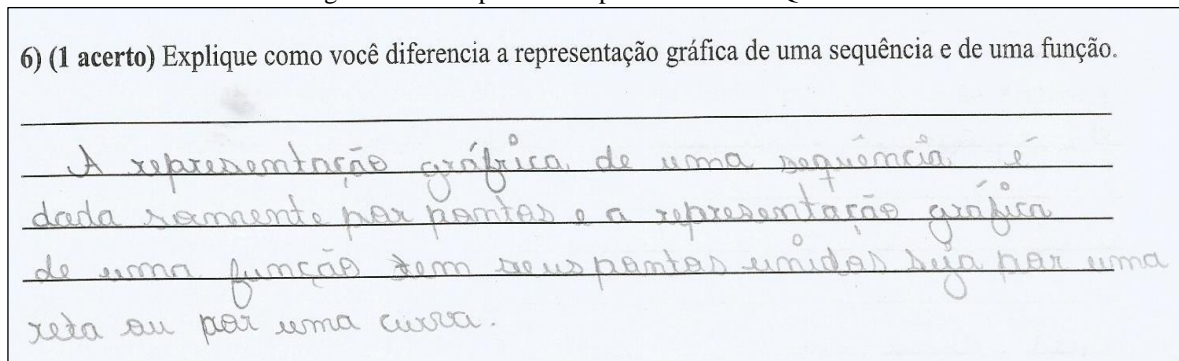 6) (1 acerto) Explique como você diferencia a representação gráfica de uma sequência e de uma função.
A representação gráfica de uma sequência é
dada somente por pontos e a representação gráfica
de uma função tem seus pontos unidos seja por uma
reta ou por uma curva.